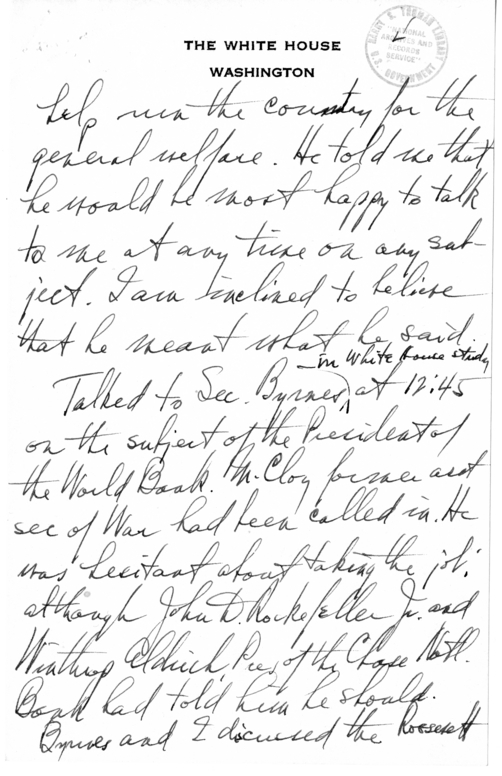 HARRY S. TRUMAN LIBRARY
"NATIONAL
ARCHIVES AND
RECORDS
SERVICE"
U.S. GOVERNMENT
THE WHITE HOUSE
WASHINGTON
help run the country for the
general welfare. He told me that
he would be most happy to talk
to me at any time on any sub-
ject. I am inclined to believe
that he meant what he said.
– in White House study
Talked to Sec. Byrnes, at 12:45
on the subject of the President of
the World Bank. McCloy former asst
sec of War had been called in. He
was hesitant about taking the job,
although John D. Rockefeller Jr. and
Winthrop Aldrich, Pres, of the Chase Natl.
Bank had told him he should.
Byrnes and I discussed the Roosevelt